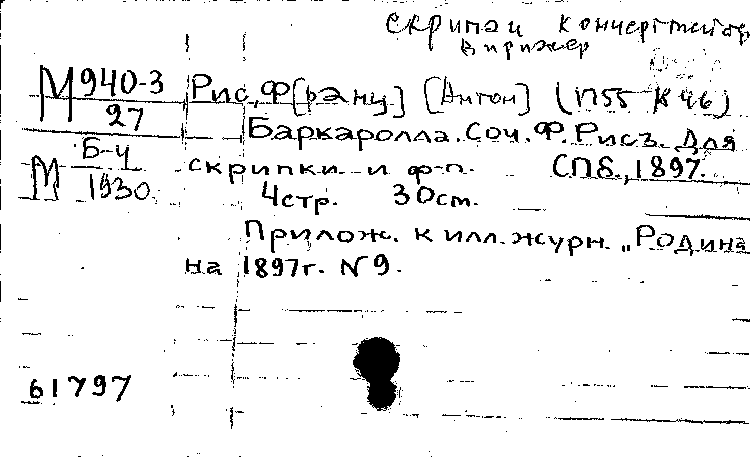 скрипач концертмейстер
дирижер
М 940-3
27
Рис, Ф[ранц] [Антон] (1755-1846)
Баркаролла. Соч. Ф. Рисъ. Для
М Б-4
1930
скрипки и ф-п. СПб., 1897.
4стр. 30ст.
Прилож. к илл. журн. „Родина
на 1897г. N9.
61797